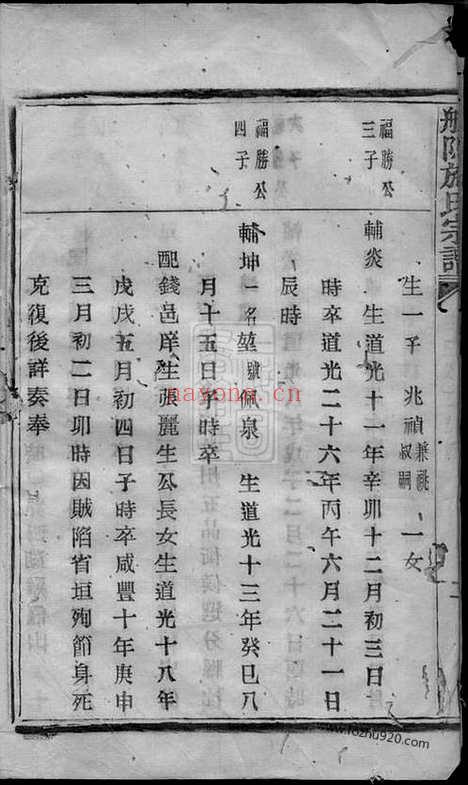 施氏宗譜
生一子兆禎兼祧叔嗣一女
福勝公三子
輔炎 生道光十一年辛卯十二月初三日
時卒道光二十六年丙午六月二十一日
辰時
福勝公四子
輔坤一名堃號佩泉 生道光十三年癸巳八
月十五日子時卒
配錢邑庠生張麗生公長女生道光十八年
戊戌五月初四日子時卒咸豐十年庚申
三月初二日卯時因賊陷省垣殉節身死
克復後詳奏奉
nayong.cn
www.fozhu920.com